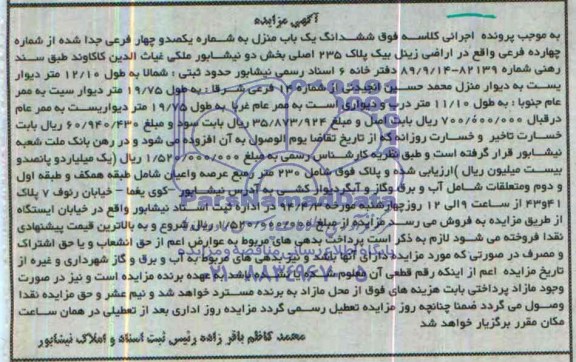 آگهی مزایده
به موجب پرونده اجرائی کلاسه فوق ششدانگ یک باب منزل به شماره یکصدو چهار فرعی جدا شده از شماره
چهارده فرعی واقع در اراضی زینل بیک پلاک ۲۳۵ اصلی بخش دو نیشابور ملکی غیاث الدین کاکاوند طبق سند
رهنی شماره ۸۲۱۳۹-۸۹/۹/۱۴ دفتر خانه ۶ اسناد رسمی نیشابور حدود ثبتی : شمالا به طول ۱۲/۱۰ متر دیوار
یست به دیوار منزل محمد حسین شماره ۱۴ فرعی شرقا : به طول ۱۹/۷۵ متر دیوار یست به ممر
عام جنوبا : به طول ۱۱/۱۰ متر درب و دیواری است به ممر عام غربا به طول ۱۹/۷۵ متر دیواریست به ممر عام
درقبال ۷۰۰/۶۰۰/۰۰۰ ریال بابت اصل و مبلغ ۳۵/۸۷۳/۹۲۴ ریال بابت سود و مبلغ ۶۰/۹۴۰/۴۳۰ ریال بابت
خسارت تاخیر و خسارت روزانه که از تاریخ تقاضا یوم الوصول به آن افزوده می شود و در رهن بانک ملت شعبه
نیشابور قرار گرفته است و طبق نظریه کارشناس رسمی به مبلغ ۱/۵۲۰/۰۰۰/۰۰۰ ریال (یک میلیاردو پانصدو
بیست میلیون ریال )ارزیابی شده و پلاک فوق شامل ۲۳۰ متر رمبع عرصه واعیان شامل طبقه همکف و طبقه اول
و دوم ومتعلقات شامل آب و برق وگاز و آبگردیوار کشی به آدرس نیشابور -کوی یغما - خیابان رئوف ۷ پلاک
۴۱و۴۳ از ساعت ۹الی ۱۲ روز در اداره ثبت اسناد نیشابور واقع در خیابان ایستگاه
از طریق مزایده به فروش می رسد مزایده از مبلغ ۱/۵۲۰/۰۰۰/۰۰۰ ریال شروع و به بالاترین قیمت پیشنهادی
نقدا فروخته می شود لازم به ذکر است پرداخت بدهی های مربوط به عوارض اعم از حق انشعاب و یا حق اشتراک
و مصرف در صورتی که مورد مزایده دارای آنها باشد و نیز بدهی های مربوط به آب و برق و گاز شهرداری و غیره از
تاریخ مزایده اعم از اینکه رقم قطعی آن معلوم به عهده برنده مزایده است و نیز در صورت
وجود مازاد پرداختی بابت هزینه های فوق از محل مازاد به برنده مسترد خواهد شد و نیم عشر و حق مزایده نقدا
وصول می گردد ضمنا چنانچه روز مزایده تعطیل رسمی گردد مزایده روز اداری بعد از تعطیلی در همان ساعت
مکان مقرر برگزیار خواهد شد
محمد کاظم باقر زاده رئیس ثبت اسناد و املاک نیشابور
ParsNamadData
پایگاه اطلاع رسانی مناقصه و مزایده
۰۲۱-۸۸۳۴۹۶۷۰-۵